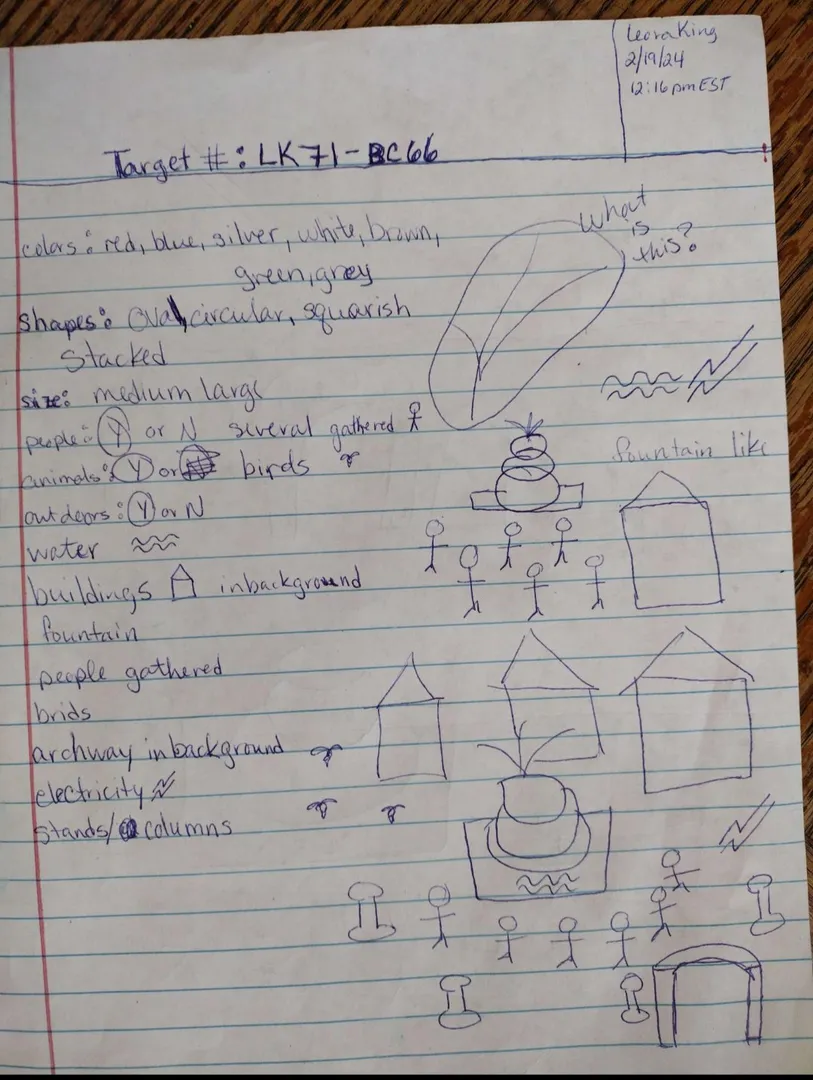 Leora King
2/19/24
12:16 pm EST
Target #: LK71-BC66
colors: red, blue, silver, white, brown,
green, grey
What
is
this?
Shapes: Oval, circular, squarish
Stacked
size: medium large
people: Y or N several gathered
animals: Y or birds
fountain like
outdoors: Y or N
water
buildings in background
fountain
people gathered
brids
archway in background
electricity
Stands/ columns